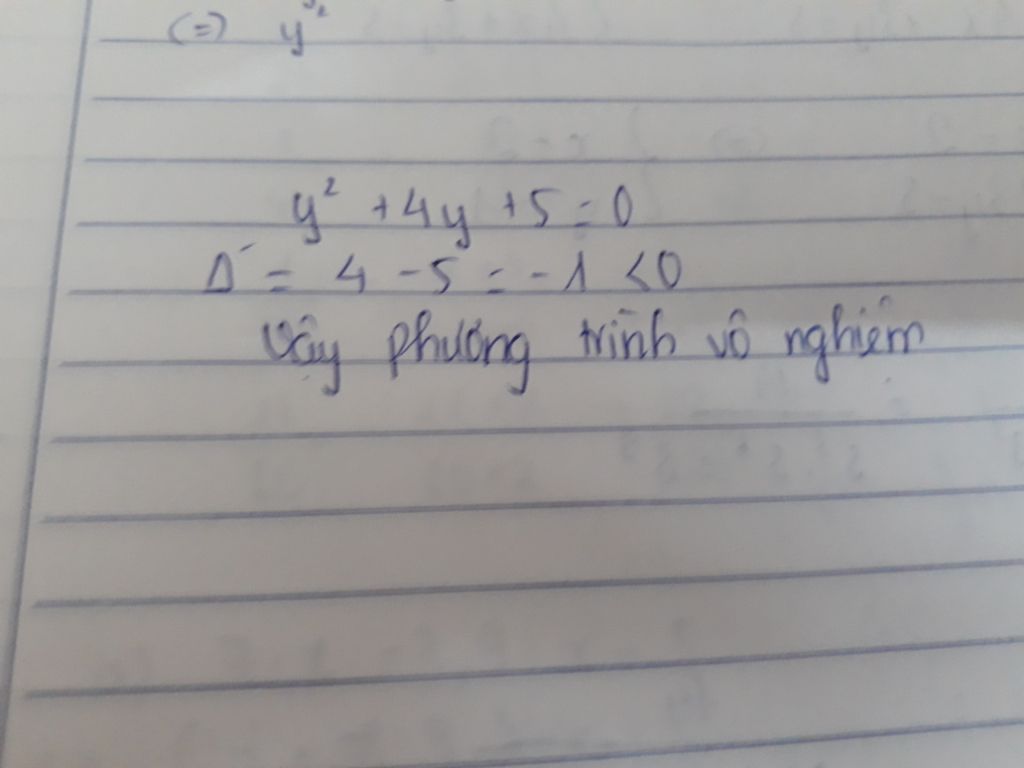 (=) y²
y² + 4y + 5 = 0
Δ' = 4 - 5 = -1 < 0
Vậy phương trình vô nghiệm